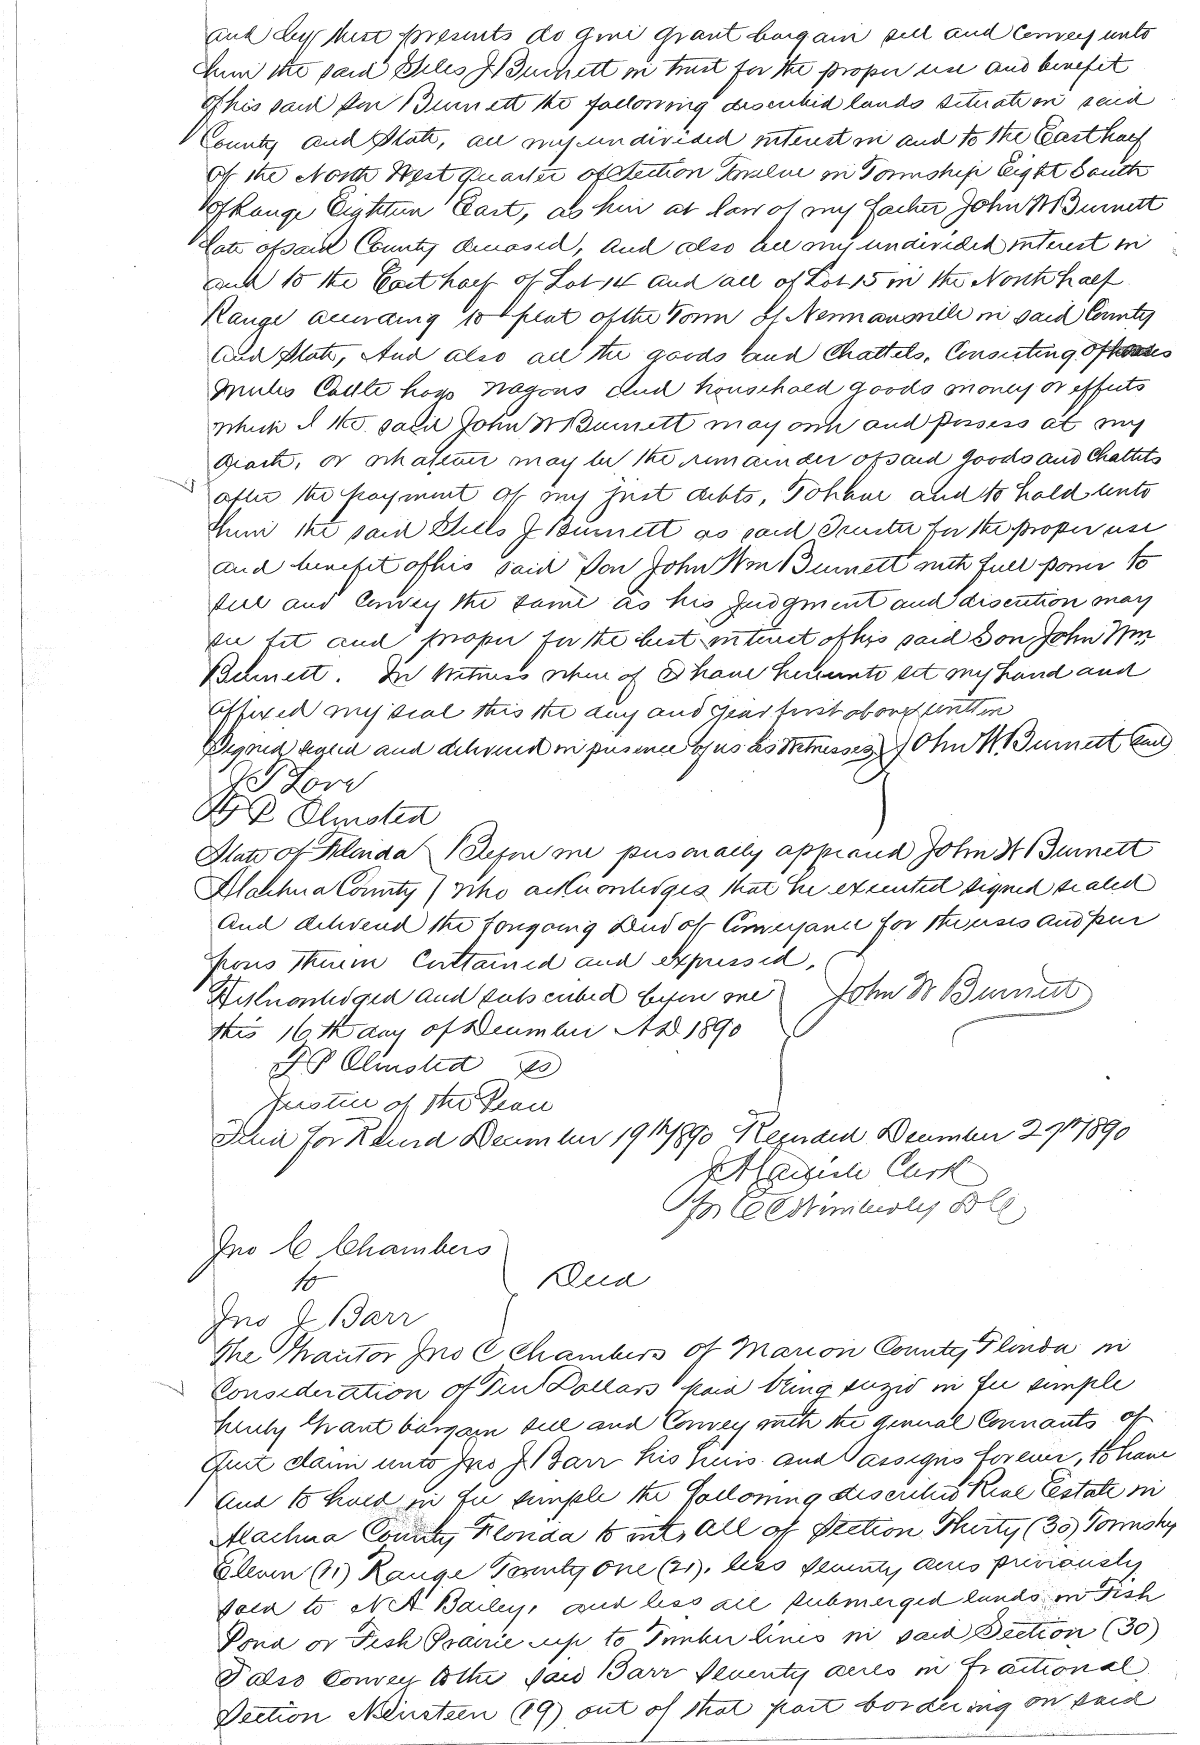 and by these presents do give grant bargain sell and convey unto
him the said Giles J Burnett in trust for the proper use and benefit
of his said son Burnett the following described lands situate in said
County and State, all my undivided interest in and to the East half
of the North West quarter of Section Twelve in Township Eight South
of Range Eighteen East, as heir at law of my father John W Burnett
late of said County deceased, and also all my undivided interest in
and to the East half of Lot 14 and all of Lot 15 in the North half
Range according to plat of the Town of Newnansville in said County
and State, And also all the goods and Chattels, Consisting of horses
mules Cattle hogs wagons and household goods money or effects
which I the said John W Burnett may own and possess at my
death, or whatever may be the remainder of said goods and Chattels
after the payment of my just debts, To have and to hold unto
him the said Giles J Burnett as said Trustee for the proper use
and benefit of his said Son John Wm Burnett with full power to
sell and Convey the same as his Judgment and discretion may
see fit and proper for the best interest of his said Son John Wm
Burnett. In Witness where of I have hereunto set my hand and
affixed my seal this the day and year first above written
Signed sealed and delivered in presence of us as Witnesses } John W. Burnett Seal
J S Love
F P Olmsted
State of Florida } Before me personally appeared John W Burnett
Alachua County } who acknowledges that he executed signed sealed
and delivered the foregoing Deed of Conveyance for the uses and pur
poses therein Contained and expressed,
Acknowledged and subscribed before me } John W Burnett
this 16th day of December A D. 1890
F P Olmsted
Justice of the Peace
Filed for Record December 19th 1890 Recorded December 27th 1890
Clerk
Wimberly D C
Jno C Chambers
to Deed
Jno J Barr
The Grantor Jno C Chambers of Marion County Florida in
Consideration of Ten Dollars paid being seized in fee simple
hereby Grant bargain sell and Convey with the general Covenants of
Quit claim unto Jno J Barr his heirs and assigns forever, to have
and to hold in fee simple the following described Real Estate in
Alachua County Florida to wit, All of Section Thirty (30) Township
Eleven (11) Range Twenty One (21), less seventy acres previously
sold to N A Bailey, and less all submerged lands in Fish
Pond or Fish Prairie up to Timber lines in said Section (30)
I also convey to the said Barr seventy acres in fractional
Section Nineteen (19) out of that part bordering on said